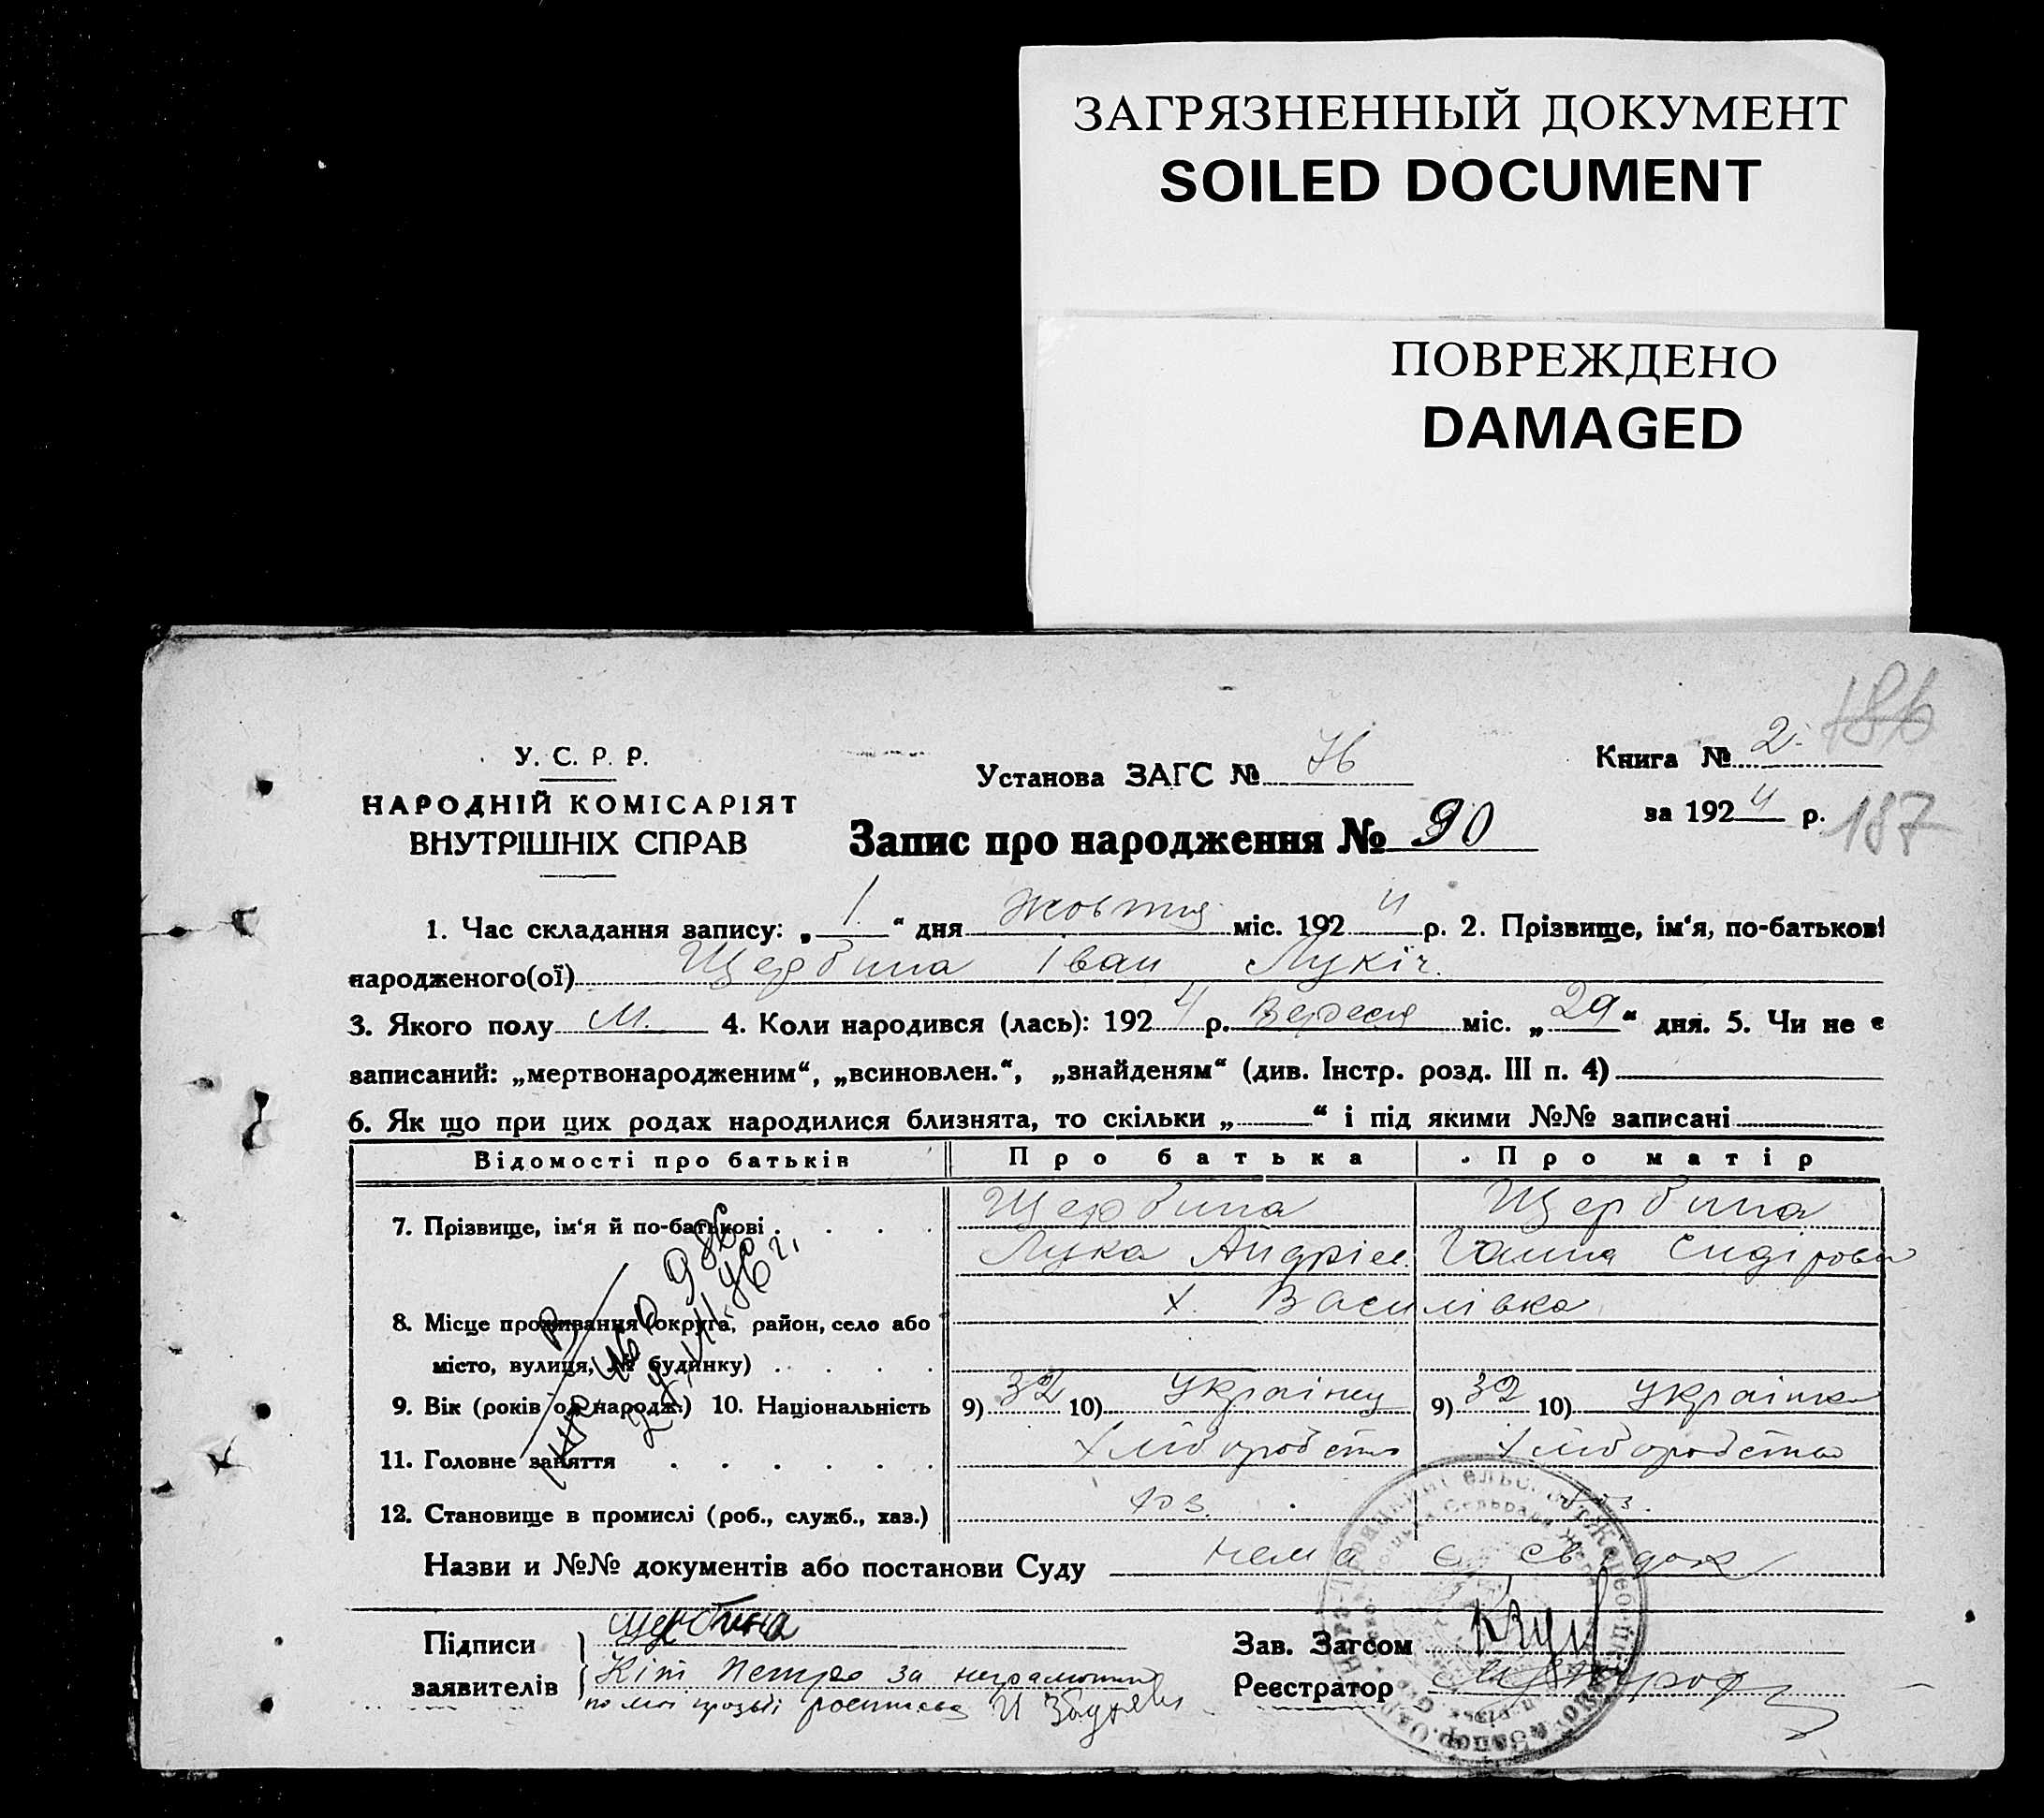 ЗАГРЯЗНЕННЫЙ ДОКУМЕНТ
SOILED DOCUMENT
ПОВРЕЖДЕНО
DAMAGED
186
У. С. Р. Р.
НАРОДНІЙ КОМІСАРІЯТ
ВНУТРІШНІХ СПРАВ
Установа ЗАГС № 76
Книга № 2.
за 1924 р.
187
Запис про народження № 90
1. Час складання запису: „ 1 “ дня Жовтня міс. 1924 р. 2. Прізвище, ім‘я, по-батькові
народженого(ої) Щербина Іван Лукіч.
3. Якого полу М. 4. Коли народився (лась): 1924 р. Вересня міс. „ 29 “ дня. 5. Чи не є
записаний: „мертвонародженим“, „всиновлен.“, „знайденям“ (див. Інстр. розд. III п. 4)
6. Як що при цих родах народилися близнята, то скільки „ “ і під якими №№ записані
Відомості про батьків Про батька Про матір
7. Прізвище, ім‘я й по-батькові Щербина Щербина
Лука Андріев. Ганна Сидірова
8. Місце проживання (округа, район, село або х. Василівка
місто, вулиця, № будинку)
9. Вік (років од народж.) 10. Національність 9) 32 10) Українец 9) 32 10) Українка
11. Головне заняття Хліборобство Хліборобство
12. Становище в промислі (роб., служб., хаз.) хоз. хоз.
Назви и №№ документів або постанови Суду нема є свідок
Підписи Щербина Зав. Загсом
заявителів Кіт Петро за неграмотни Реєстратор
по моі прозьбі росписавс И